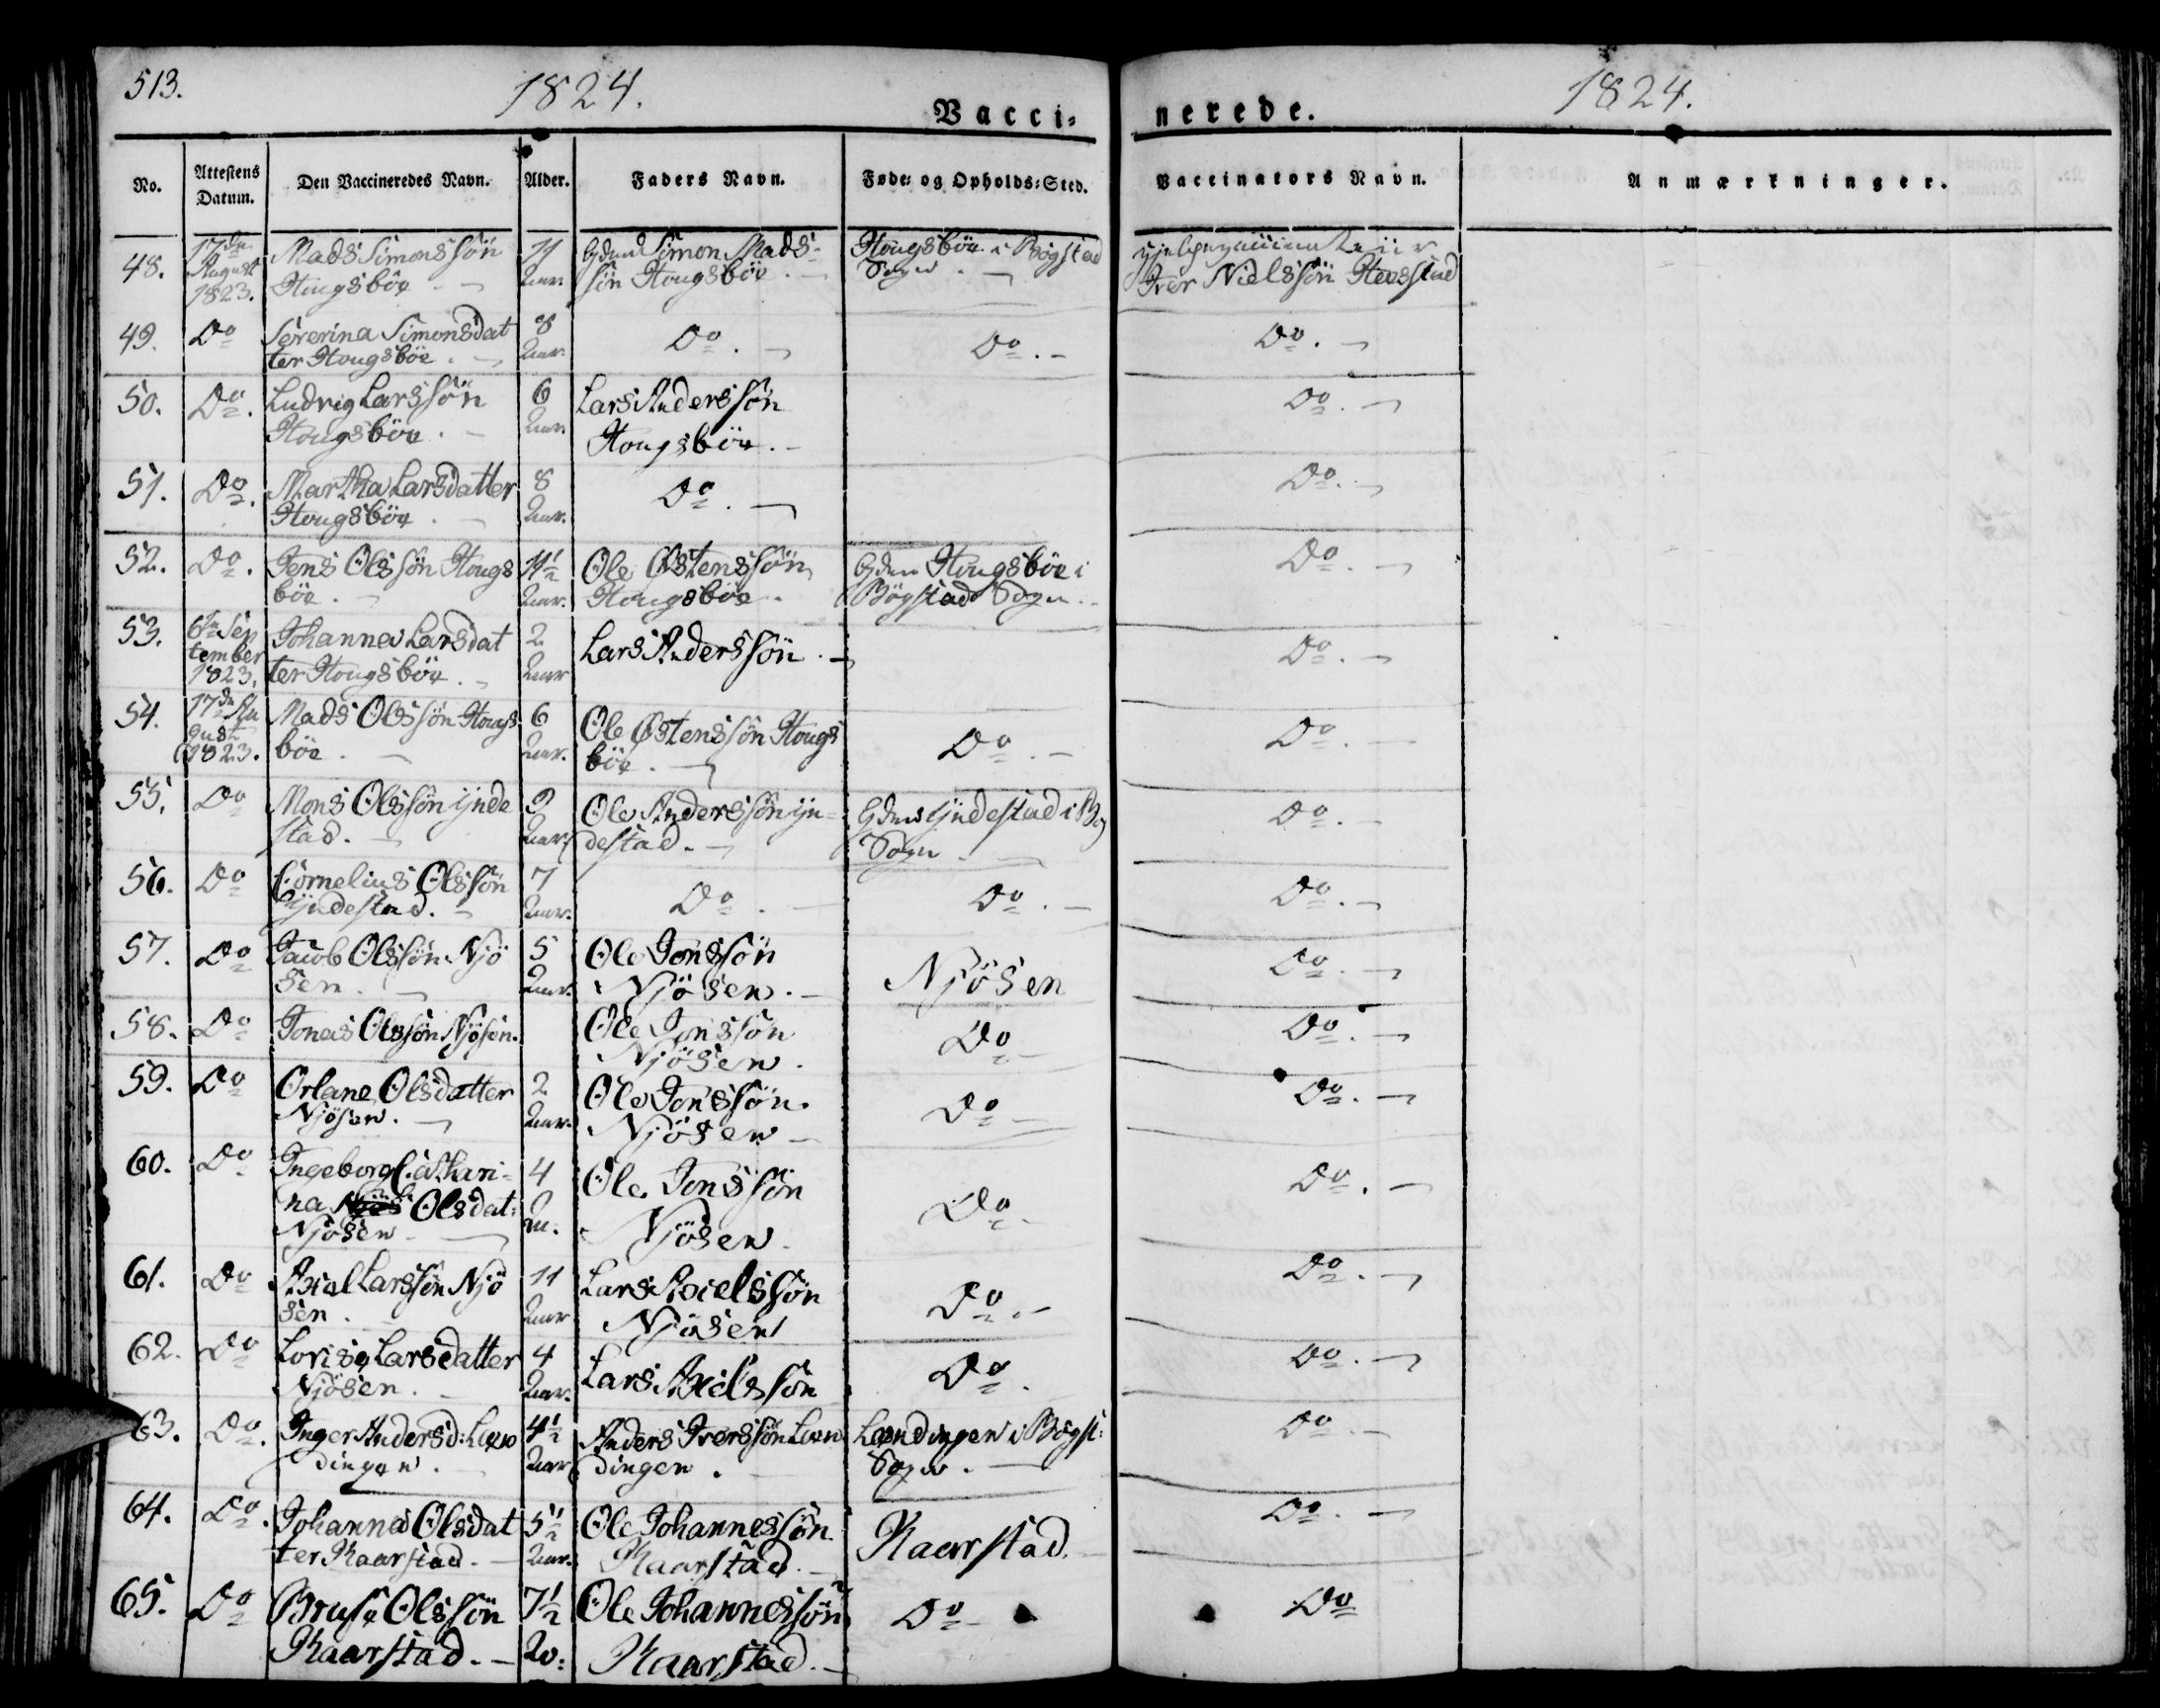 513.
1824.
Vacci-
nerede.
1824.
No.
Attestens Datum.
Den Vaccineredes Navn.
Alder.
Faders Navn.
Føde- og Opholds-Sted.
Vaccinators Navn.
Anmærkninger.
48. 17de August 1823. Mads Simonssön Hougsböe. 11 Aar Gdmd Simon Madssön Hougsböe. Hougsböe i Bögstad Sogn. Iver Nielssön
49. Do Severina Simonsdatter Hougsböe. 8 Aar. Do. Do. Do.
50. Do. Ludvig Larssön Hougsböe. 6 Aar. Lars Anderssön Hougsböe. Do.
51. Do. Martha Larsdatter Hougsböe. 8 Aar. Do. Do.
52. Do. Jens Olssön Hougsböe. 11½ Aar. Ole Østenssön Hougsböe. Gden Hougsböe i Bögstad Sogn. Do.
53. 6te September 1823. Johanna Larsdatter Hougsböe. 2 Aar Lars Anderssön. Do.
54. 17de August 1823. Mads Olssön Hougsböe. 6 Aar. Ole Østenssön Hougsböe. Do. Do.
55. Do Mons Olssön Yndestad. 9 Aar. Ole Anderssön Yndestad. Gden Yndestad i Bög Sogn. Do.
56. Do Cornelius Olssön Yndestad. 7 Aar. Do. Do. Do.
57. Do Jacob Olssön Njösen. 5 Aar. Ole Jonssön Njösen. Njösen Do.
58. Do Jonas Olssön Njösen. Ole Jonssön Njösen. Do Do.
59. Do Orlane Olsdatter Njösen. 2 Aar. Ole Jonssön Njösen Do Do.
60. Do Ingeborg Cathrina Olsdat: Njösen 4 Aar. Ole Jonssön Njösen. Do Do.
61. Do Axel Larssön Njösen. 11 Aar Lars Axelssön Njösen Do. Do.
62. Do Lovise Larsdatter Njösen. 4 Aar. Lars Axelssön Do. Do.
63. Do. Inger Andersd: Løndingen. 4½ Aar Anders Iverssön Løndingen. Løndingen i Bögst: Sogn. Do.
64. Do. Johanna Olsdatter Kaarstad. 5½ Aar. Ole Johannessön Kaarstad. Kaarstad. Do.
65. Do Bruse Olssön Kaarstad. 7½ Ole Johannessön Kaarstad. Do Do